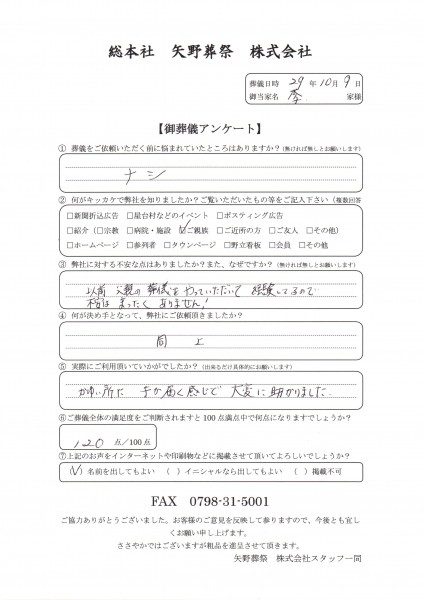 総本社　矢野葬祭　株式会社
葬儀日時 29 年 10 月 9 日
御当家名 李 家様
【御葬儀アンケート】
① 葬儀をご依頼いただく前に悩まれていたところはありますか？(無ければ無しとお願いします)
ナシ
② 何がキッカケで弊社を知りましたか？ご覧いただいたもの等をご記入下さい（複数回答
□新聞折込広告　□屋台村などのイベント　□ポスティング広告
□紹介（□宗教　□病院・施設　☑ご親族　□ご近所の方　□ご友人　□その他）
□ホームページ　□参列者　□タウンページ　□野立看板　□会員　□その他
③ 弊社に対する不安な点はありますか？また、なぜですか？(無ければ無しとお願いします)
以前 父親の葬儀をやっていただいて 経験してるので
不安はまったく ありません!
④ 何が決め手となって、弊社にご依頼頂きましたか？
同上
⑤ 実際にご利用頂いていかがでしたか？(出来るだけ具体的にお願いします)
かゆい所に 手が届く感じで 大変に助かりました
⑥ご葬儀全体の満足度をご判断されますと 100 点満点中で何点になりますでしょうか？
120 点／100 点
⑦上記のお声をインターネットや印刷物などに掲載させて頂いてよろしいでしょうか？
(✓) 名前を出してもよい　（ ）イニシャルなら出してもよい　（ ）掲載不可
FAX　0798-31-5001
ご協力ありがとうございました。お客様のご意見を反映して参りますので、今後とも宜し
くお願い申し上げます。
ささやかではございますが粗品を進呈させて頂きます。
矢野葬祭　株式会社スタッフ一同